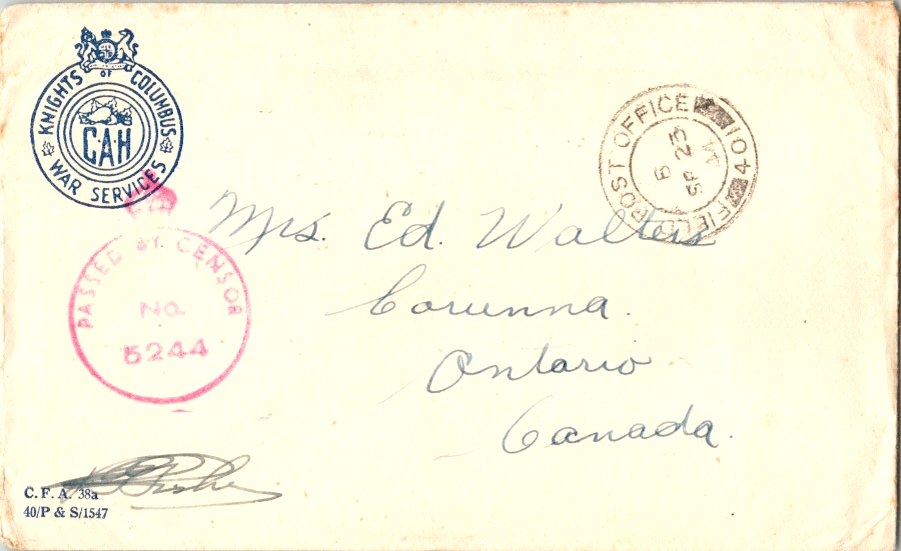 KNIGHTS OF COLUMBUS
C·A·H
WAR SERVICES
FIELD POST OFFICE 104
5
SP 23
PASSED BY CENSOR
No.
5244
Mrs. Ed. Walters
Corunna.
Ontario
Canada.
C. F. A. 38a
40/P & S/1547